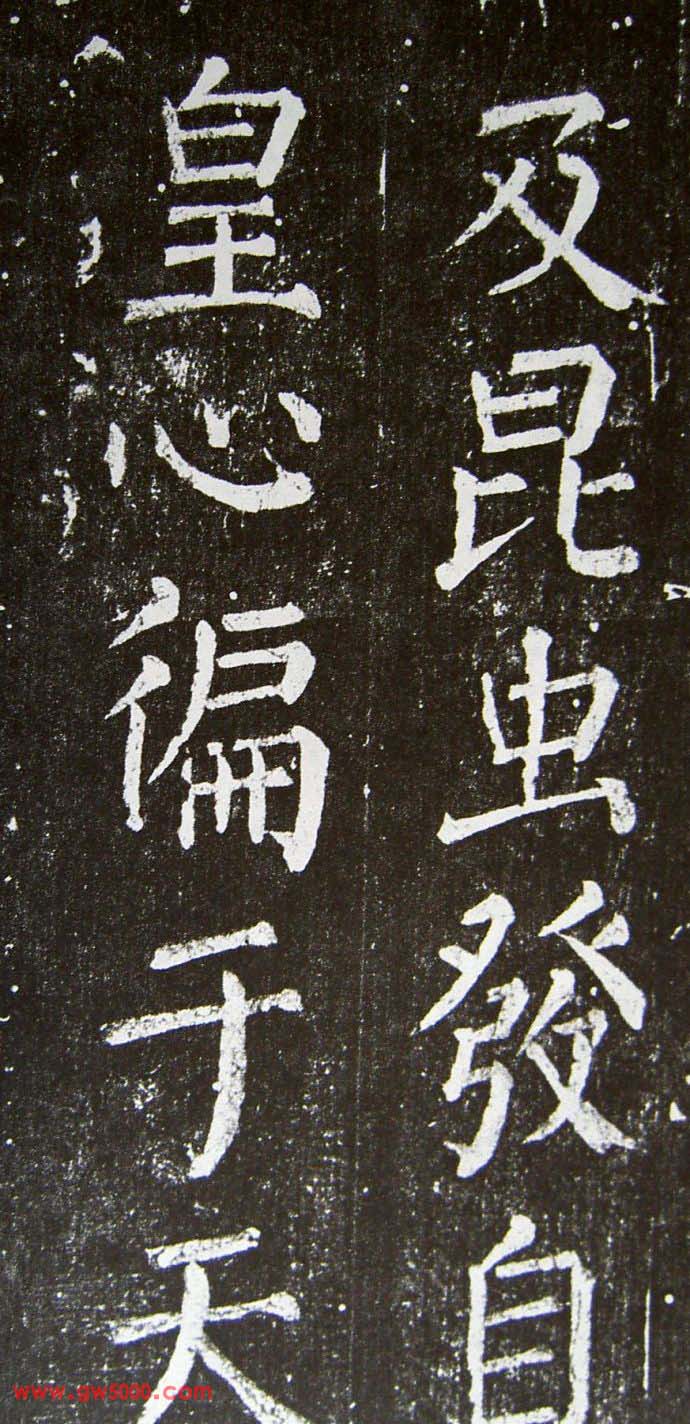 及昆虫發自
皇心徧于天
www.gw5000.com